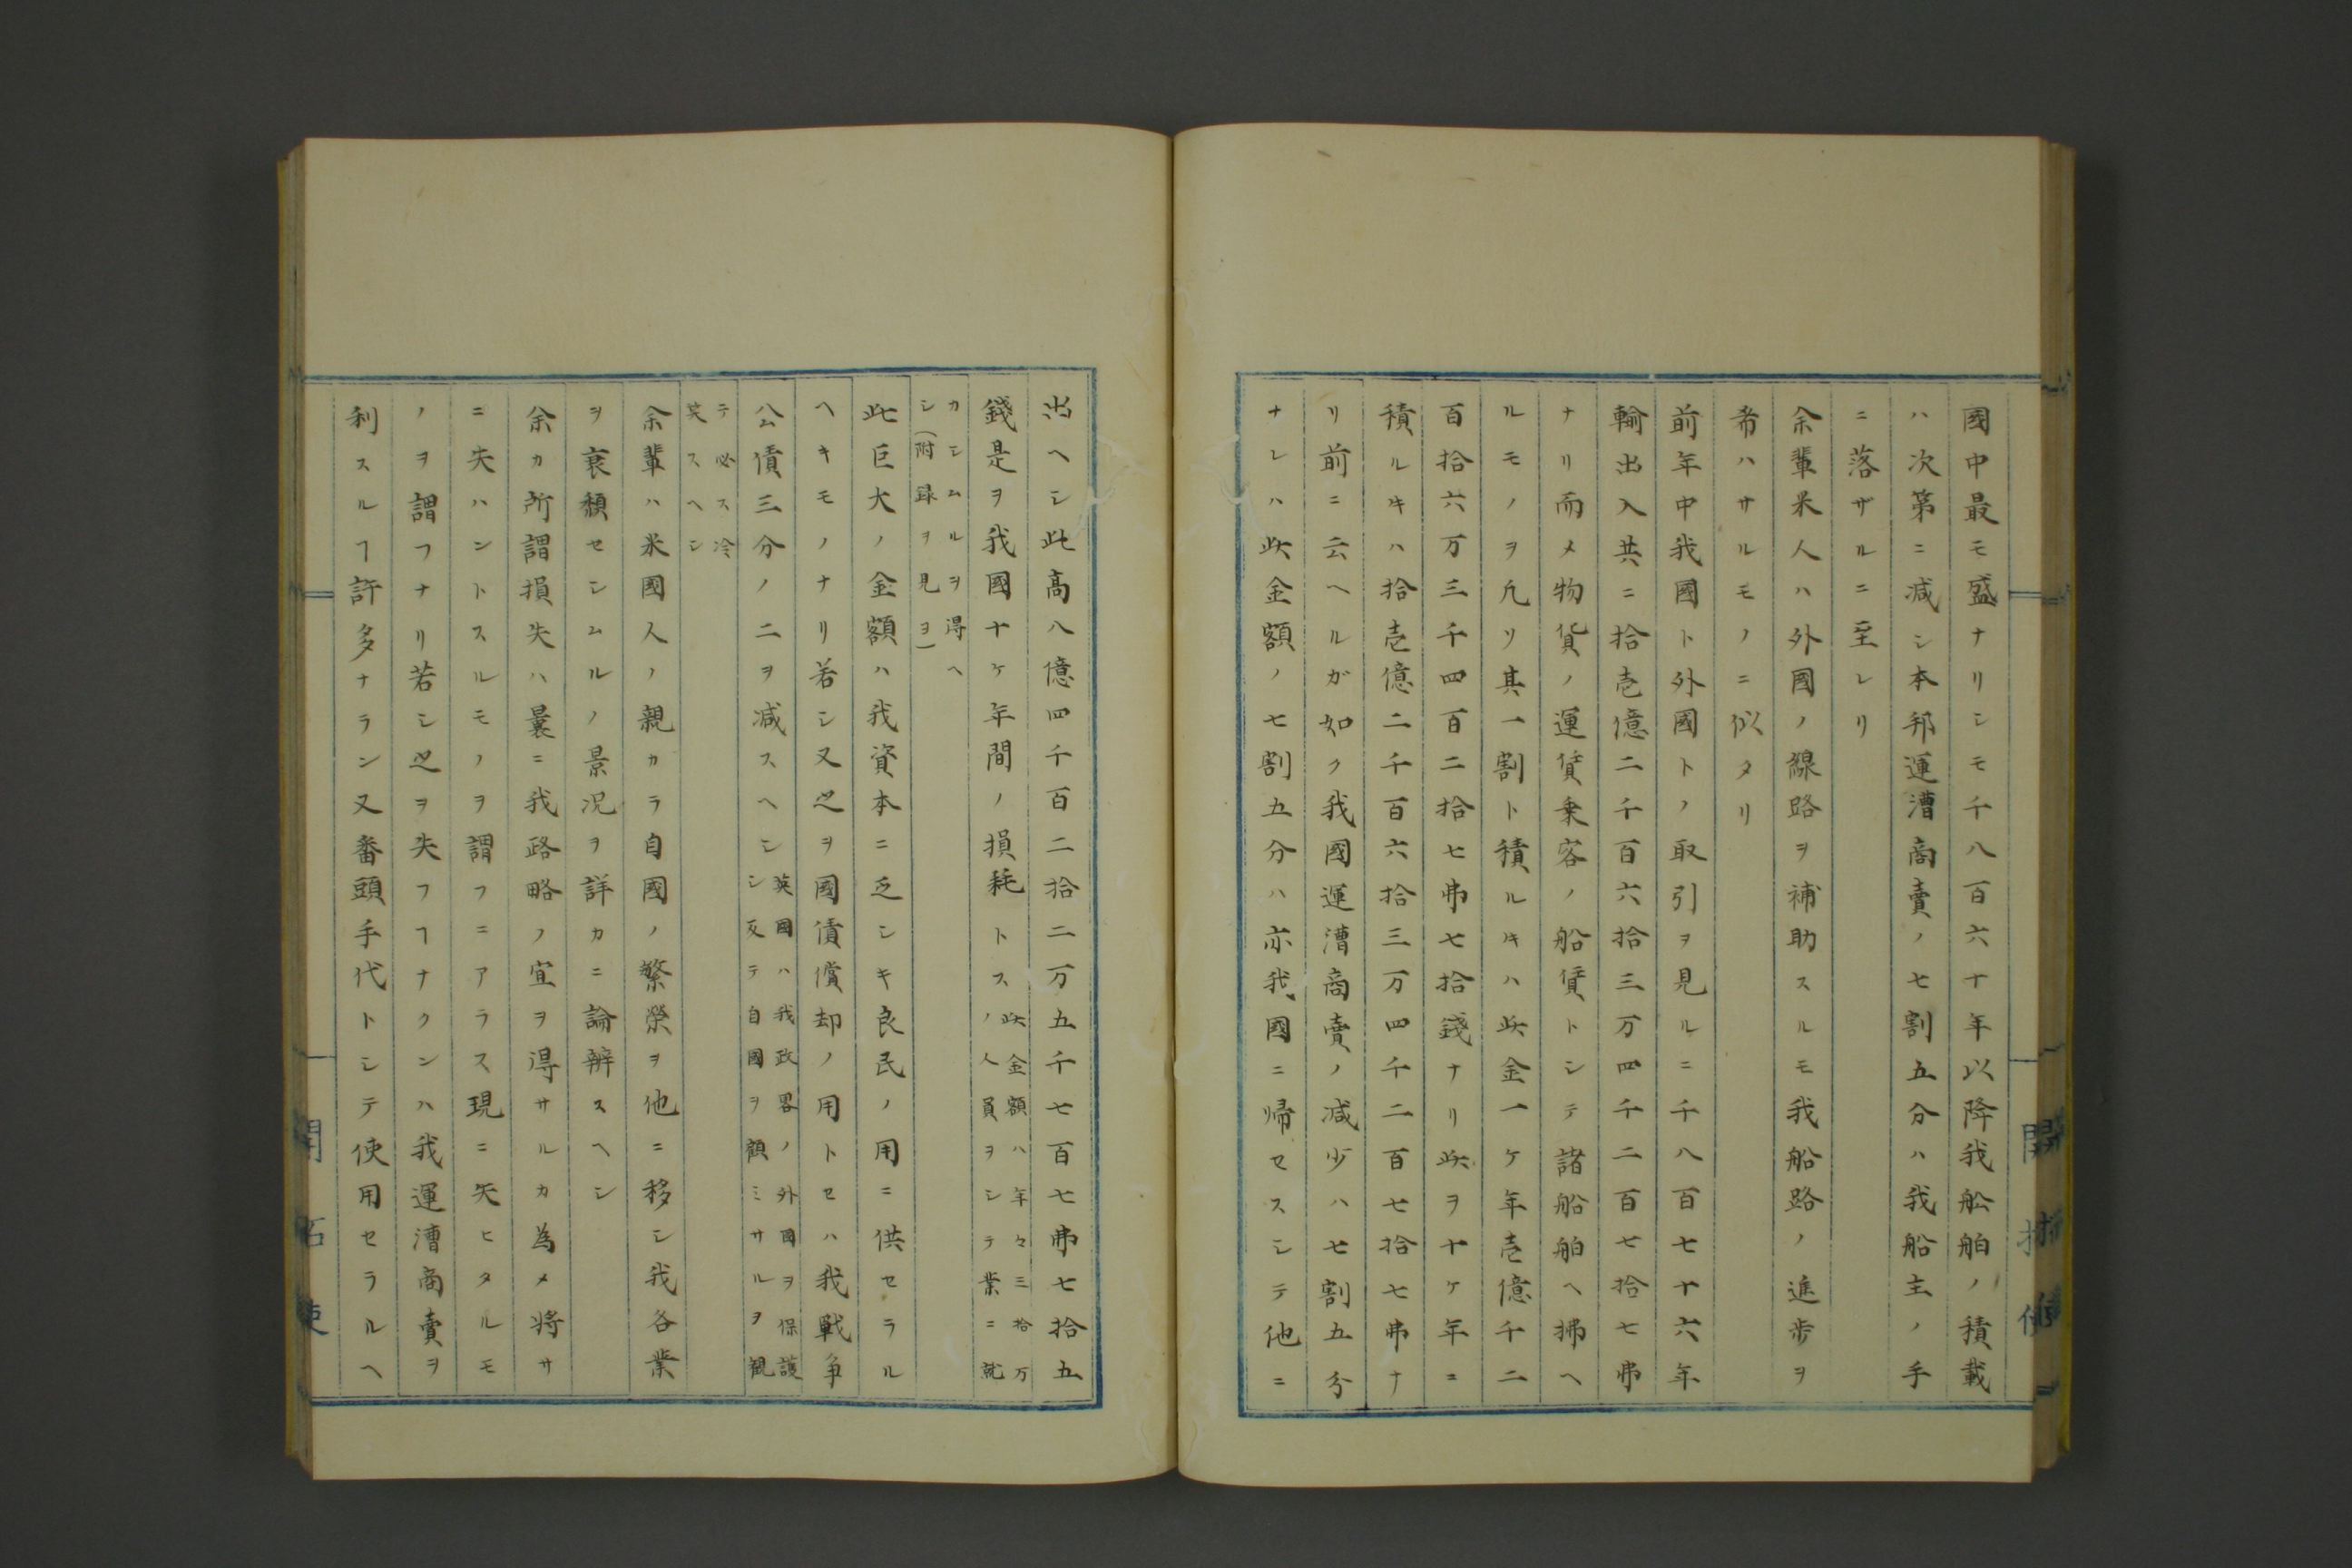 國中最モ盛ナリシモ千八百六十年以降我舩舶ノ積載
ハ次第ニ減シ本邦運漕商賣ノ七割五分ハ我船主ノ手
ニ落ザルニ至レリ
余輩米人ハ外國ノ線路ヲ補助スルモ我船路ノ進歩ヲ
希ハサルモノニ似タリ
前年中我國ト外國トノ取引ヲ見ルニ千八百七十六年
輸出入共ニ拾壱億二千百六拾三万四千二百七拾七弗
ナリ而メ物貨ノ運賃乗客ノ船賃トシテ諸船舶ヘ拂ヘ
ルモノヲ凢ソ其一割ト積ルキハ此金一ケ年壱億千二
百拾六万三千四百二拾七弗七拾錢ナリ此ヲ十ケ年ニ
積ルキハ拾壱億二千百六拾三万四千二百七拾七弗ナ
リ前ニ云ヘルガ如ク我國運漕商賣ノ減少ハ七割五分
ナレハ此金額ノ七割五分ハ亦我國ニ帰セスシテ他ニ
出ヘシ此高八億四千百二拾二万五千七百七弗七拾五
錢是ヲ我國十ケ年間ノ損耗トス此金額ハ年々三拾万
ノ人員ヲシテ業ニ就
カシムルヲ得ヘ
シ(附録ヲ見ヨ)
此巨大ノ金額ハ我資本ニ乏シキ良民ノ用ニ供セラル
ヘキモノナリ若シ又之ヲ國債償却ノ用トセハ我戰争
公債三分ノ二ヲ減スヘシ英國ハ我政畧ノ外國ヲ保護
シ反テ自國ヲ顧ミサルヲ観
テ必ス冷
笑スヘシ
余輩ハ米國人ノ親カラ自國ノ繁榮ヲ他ニ移シ我各業
ヲ衰頽セシムルノ景況ヲ詳カニ論辨スヘシ
余カ所謂損失ハ曩ニ我路略ノ宜ヲ得サルカ為メ将サ
ニ失ハントスルモノヲ謂フニアラス現ニ失ヒタルモ
ノヲ謂フナリ若シ之ヲ失フヿナクンハ我運漕商賣ヲ
利スルヿ許多ナラン又番頭手代トシテ使用セラルヘ
開拓使